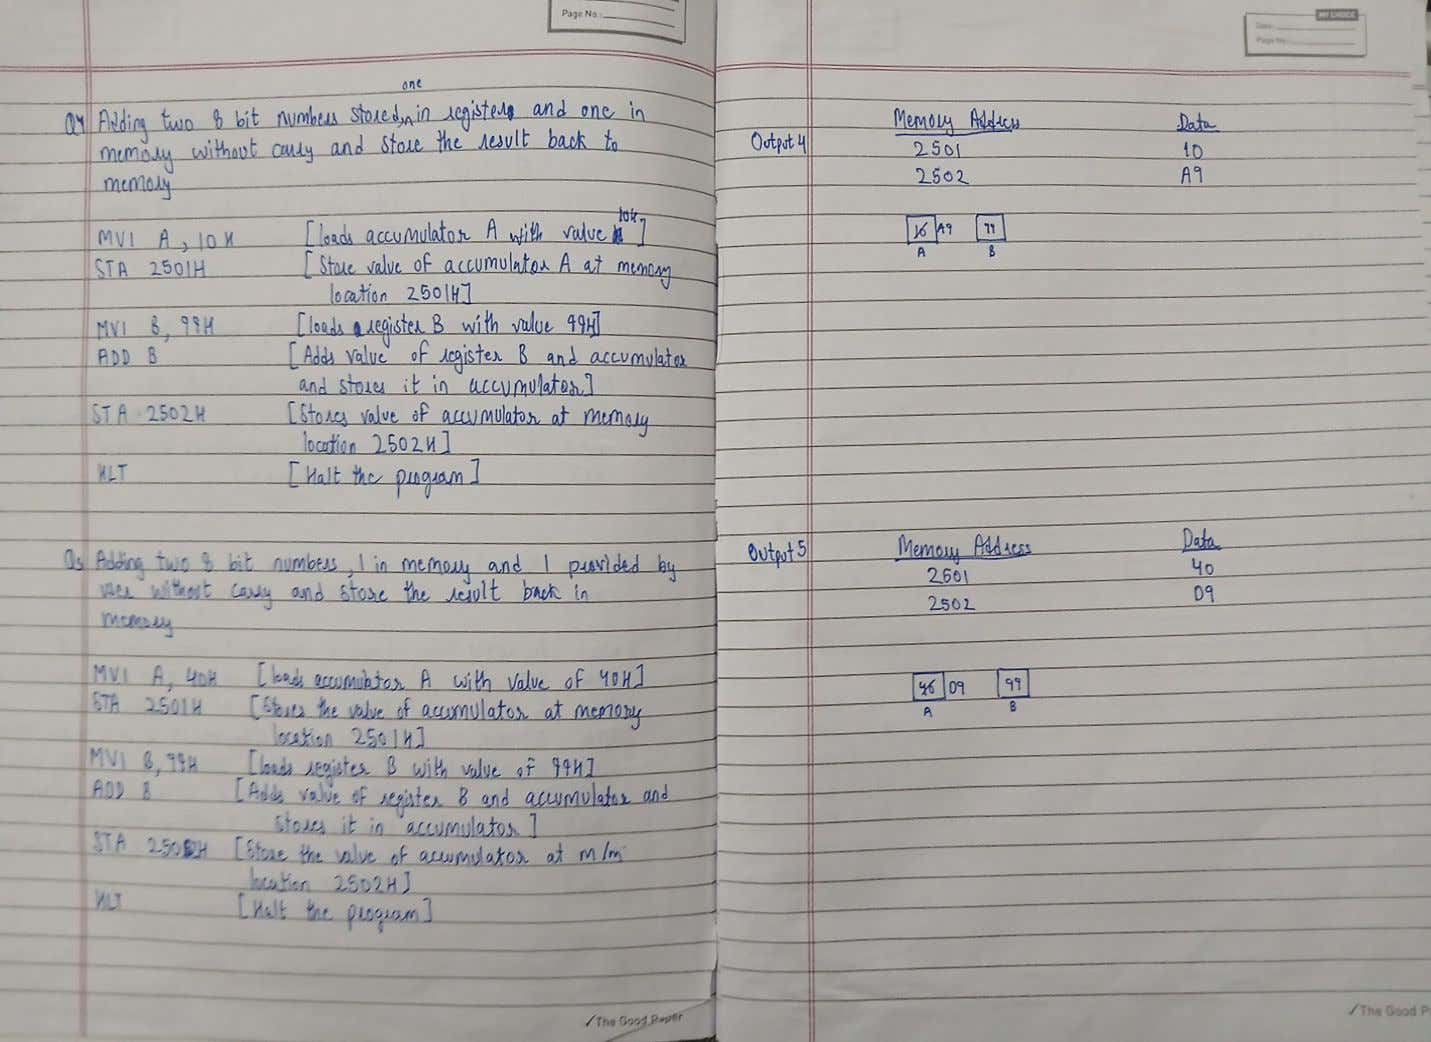 Page No.:
one
Q4 Adding two 8 bit numbers stored in registers and one in
memory without carry and store the result back to
memory
MVI A, 10H [loads accumulator A with value 10H]
STA 2501H [Store value of accumulator A at memory
location 2501H]
MVI B, 99H [loads register B with value 99H]
ADD B [Adds value of register B and accumulator
and stores it in accumulator]
STA 2502H [Stores value of accumulator at memory
location 2502H]
HLT [Halt the program]
Q5 Adding two 8 bit numbers, 1 in memory and 1 provided by
user without carry and store the result back in
memory
MVI A, 40H [loads accumulator A with value of 40H]
STA 2501H [Stores the value of accumulator at memory
location 2501H]
MVI B, 99H [loads register B with value of 99H]
ADD B [Adds value of register B and accumulator and
stores it in accumulator]
STA 2502H [Store the value of accumulator at m/m
location 2502H]
HLT [Halt the program]
/The Good Paper
MY CHOICE
Date:
Page No.
Output 4 Memory Address Data
2501 10
2502 A9
A9 99
A B
Output 5 Memory Address Data
2501 40
2502 09
09 99
A B
/The Good P